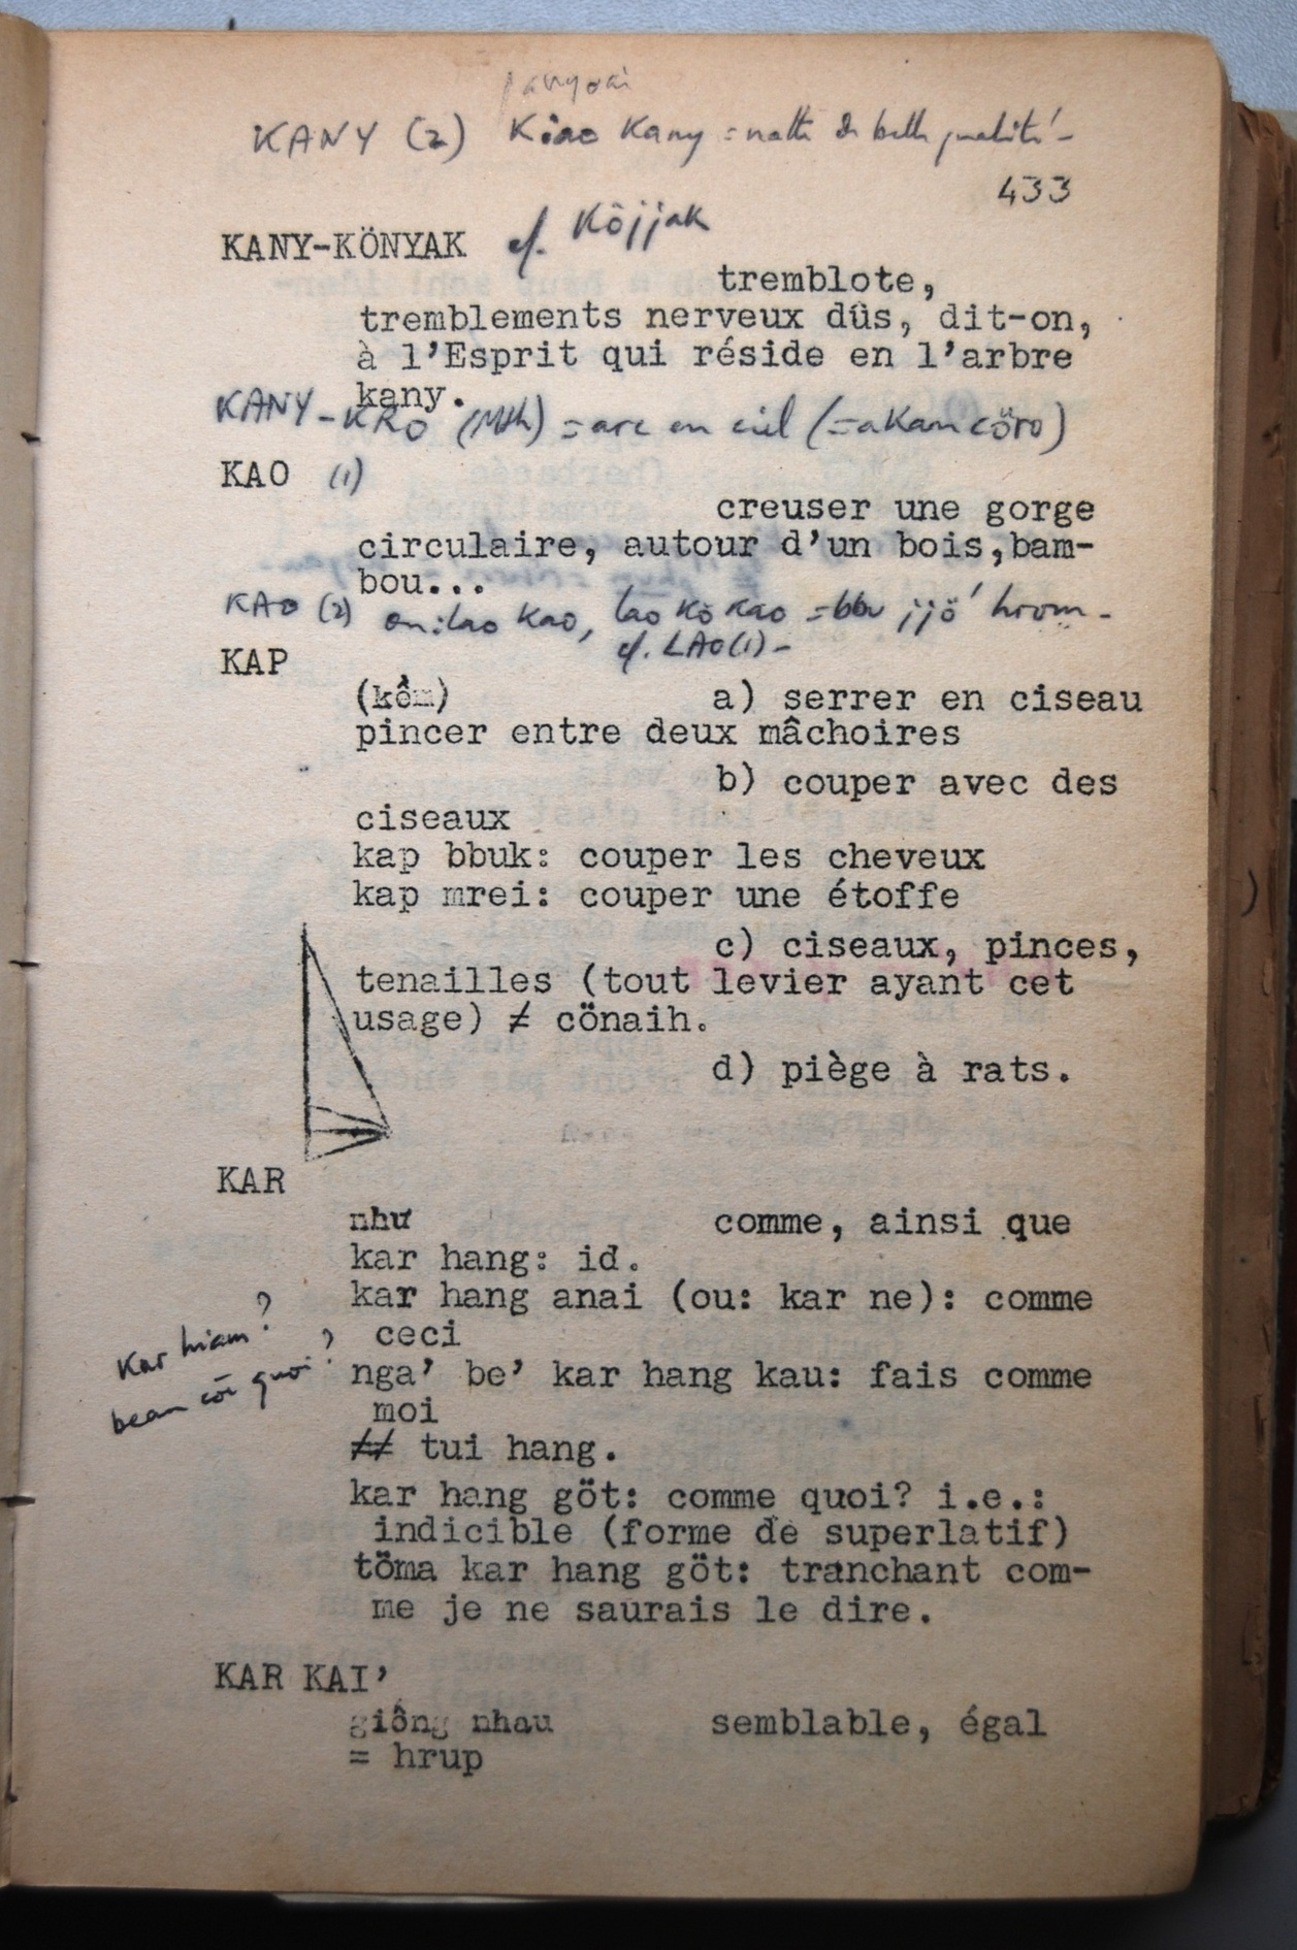 KANY (2) Kiao Kany = natte de belle qualité -
433
KANY-KÖNYAK cf. Köjjak
tremblote,
tremblements nerveux dûs, dit-on,
à l'Esprit qui réside en l'arbre
kany.
KANY-KRO (Mth) = arc en ciel (= akam cöro)
KAO (1)
creuser une gorge
circulaire, autour d'un bois,bam-
bou...
KAO (2) en: lao kao, lao kö kao = bbu jjö' hrom -
cf. LAO(1) -
KAP
(kềm) a) serrer en ciseau
pincer entre deux mâchoires
b) couper avec des
ciseaux
kap bbuk: couper les cheveux
kap mrei: couper une étoffe
c) ciseaux, pinces,
tenailles (tout levier ayant cet
usage) ≠ cönaih.
d) piège à rats.
KAR
như comme, ainsi que
kar hang: id.
kar hang anai (ou: kar ne): comme
ceci
Kar hiam?
nga' be' kar hang kau: fais comme
quoi?
moi
≠≠ tui hang.
kar hang göt: comme quoi? i.e.:
indicible (forme de superlatif)
töma kar hang göt: tranchant com-
me je ne saurais le dire.
KAR KAI'
giống nhau semblable, égal
= hrup